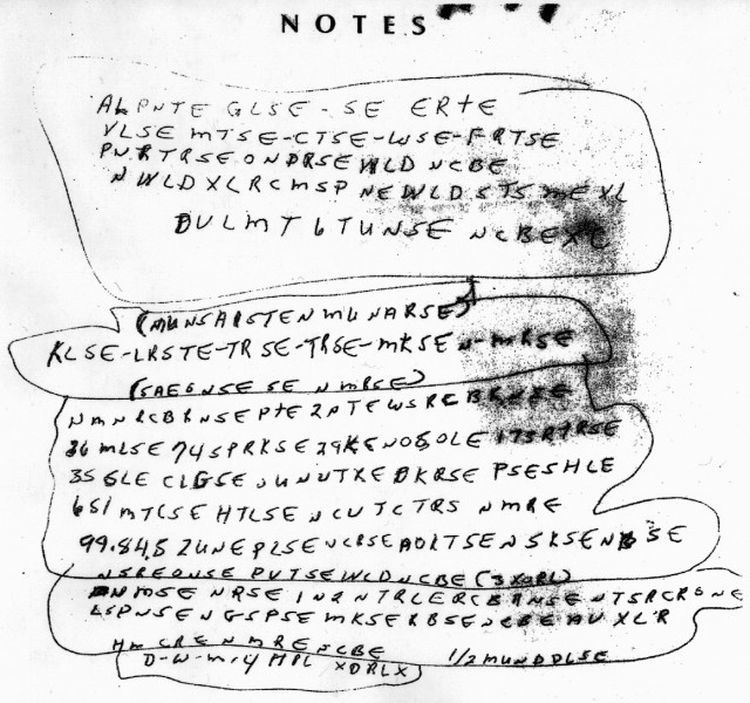 NOTES
ALPNTE GLSE-SE ERTE
VLSE MTSE-CTSE-WSE-FRTSE
PNRTRSEONDRSEWLD NCBE
NWLDXLRCMSP NEWLDSTSMEXL
DULMT6TUNSE NCBEXC
(MUNSAISTENMUNARSE)
KLSE-LRSTE-TRSE-TRSE-MKSEN-MRSE
(SAEGNSESE NMRSE)
NMNRCBRNSEPTE2PTEWSRCBRNSE
36MLSE74SPRKSE29KENOSOLE173RTRSE
35GLE CLGSEUNUTXEDKRSE PSESHLE
651MTCSEHTLSENCUTCTRS NMRE
99.84.52UNEPLSENCRSEAOLTSENSKSENBSE
NSREONSE PVTSEWLDNCBE (3XORL)
NMSE NRSE IN2NTRLERCBRNSENTSRCRSNE
LSPNSENGSPSEMKSERBSENCBEAUXL'R
HM CRENMRENCBE 1/2MUNDDLSE
D-W-M-4 HPL XDRLX